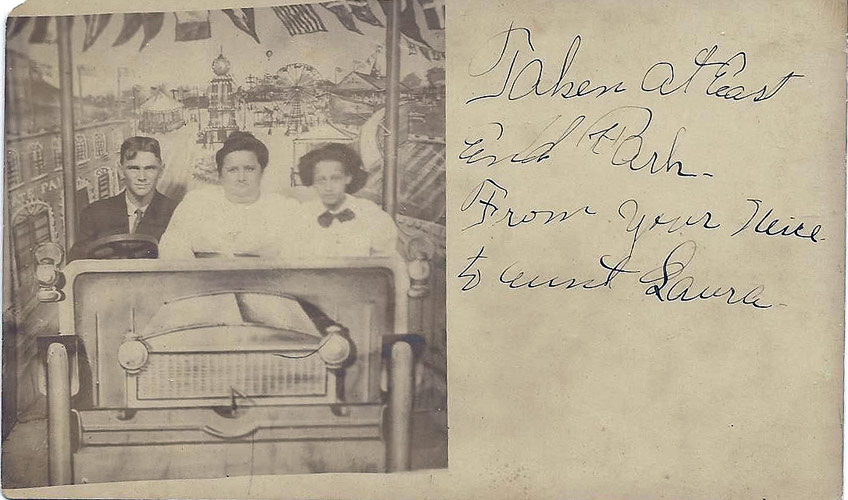 Taken at East
End Park-
From your Neice
to aunt Laura-